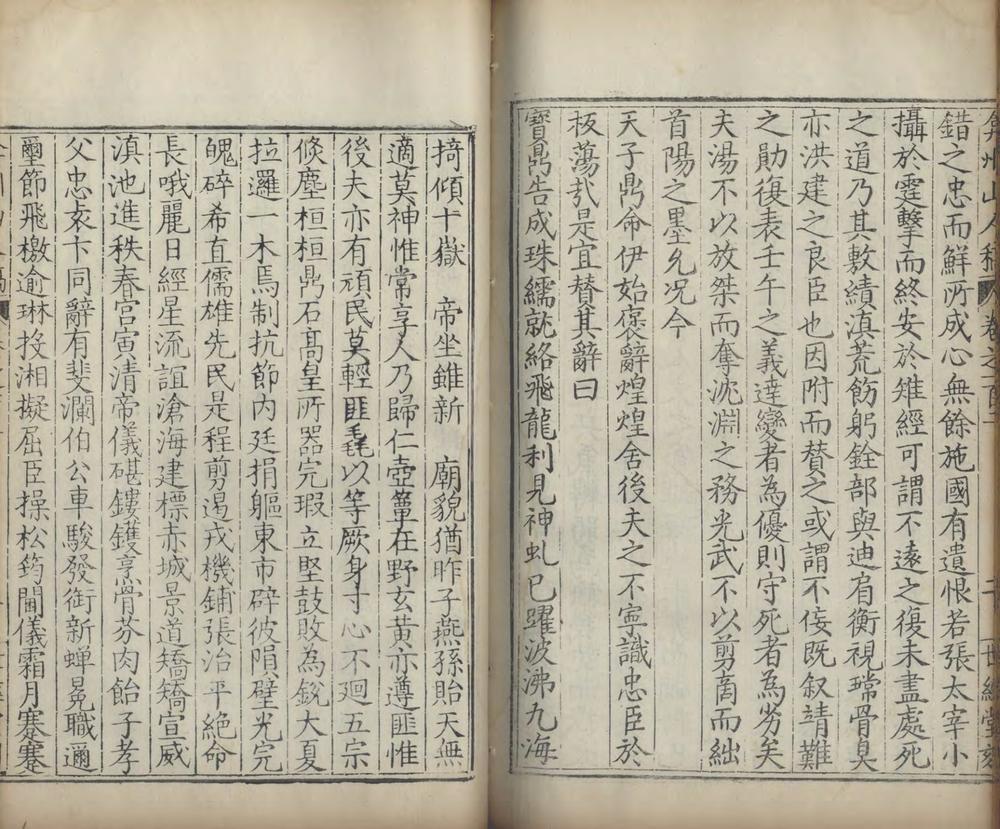 弇州山人稿 卷之百二 二 世經堂刻
錯之忠而鮮所成心無餘施國有遺恨若張太宰小
攝於霆擊而終安於雉經可謂不遠之復未盡處死
之道乃其敷績滇荒飭躬銓部與迪肩衡視璫骨臭
亦洪建之良臣也因附而賛之或謂不佞既叙靖難
之勛復表壬午之義達變者為優則守死者為劣矣
夫湯不以放桀而奪沈淵之務光武不以剪商而絀
首陽之墨允况今
天子鼎命伊始褒辭煌煌舍後夫之不寧識忠臣於
板蕩㢤是宜賛其辭曰
寶鼎告成珠繻就絡飛龍利見神虬已躍波沸九海
掎傾十嶽 帝坐雖新 廟貌猶昨子燕孫貽天無
適莫神惟常享人乃歸仁壺簞在野玄黄亦遵匪惟
後夫亦有頑民莫輕匪毛以等厥身寸心不廻五宗
倐塵桓桓鼎石髙皇所器完瑕立堅鼓敗為銳大夏
拉邏一木焉制抗節内廷捐軀東市辟彼隕璧光完
魄碎希直儒雄先民是程剪遏戎機鋪張治平絶命
長哦麗日經星流誼滄海建標赤城景道矯矯宣威
滇池進秩春宫寅清帝儀碪鏤鑊烹骨芬肉飴子孝
父忠亥卞同辭有斐瀾伯公車駿發銜新蟬冕職邇
璽節飛檄逾琳投湘擬屈臣操松筠閫儀霜月蹇蹇